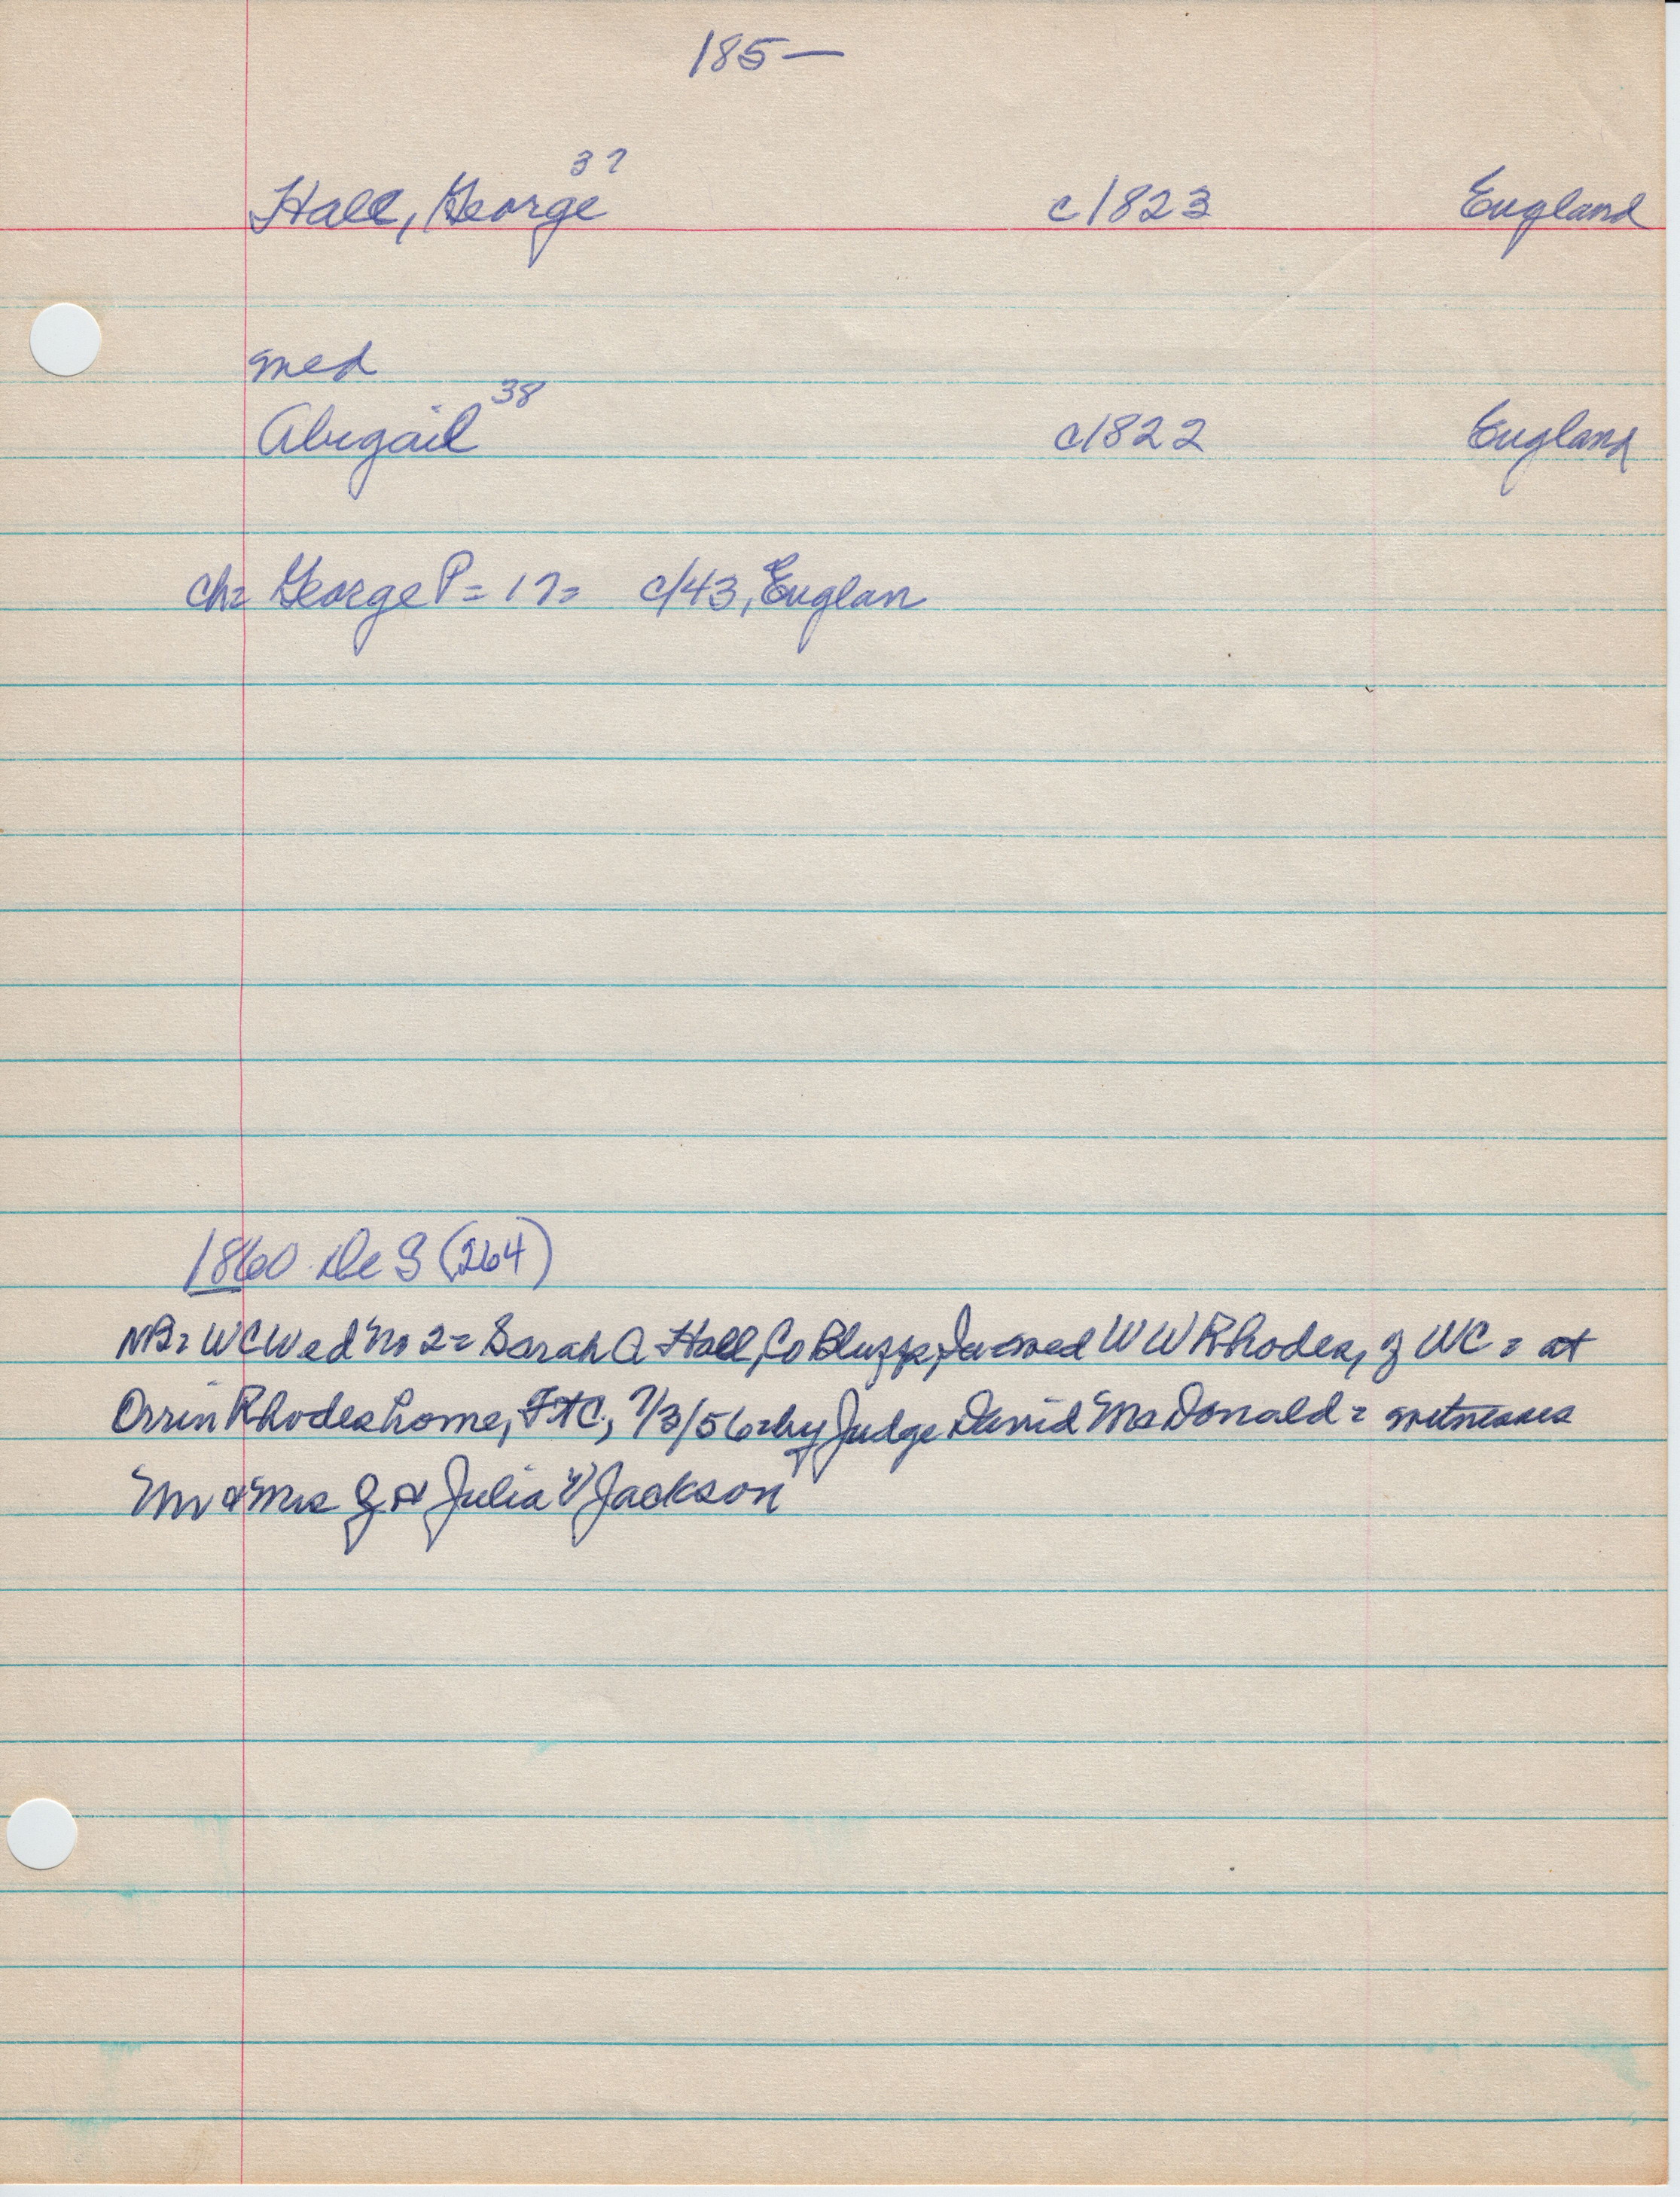 185—
Hall, George 37 c1823 England
med
Abigail 38 c1822 England
ch= George P= 17= c/43, Englan
1860 De S (264)
NB= WC Wed No 2= Sarah A Hall, Co Bluffs, Ia med W W Rhodes, of WC = at
Orrin Rhodes home, FtC, 7/3/56=by Judge David McDonald = witnesses
Mr & Mrs & Julia Jackson